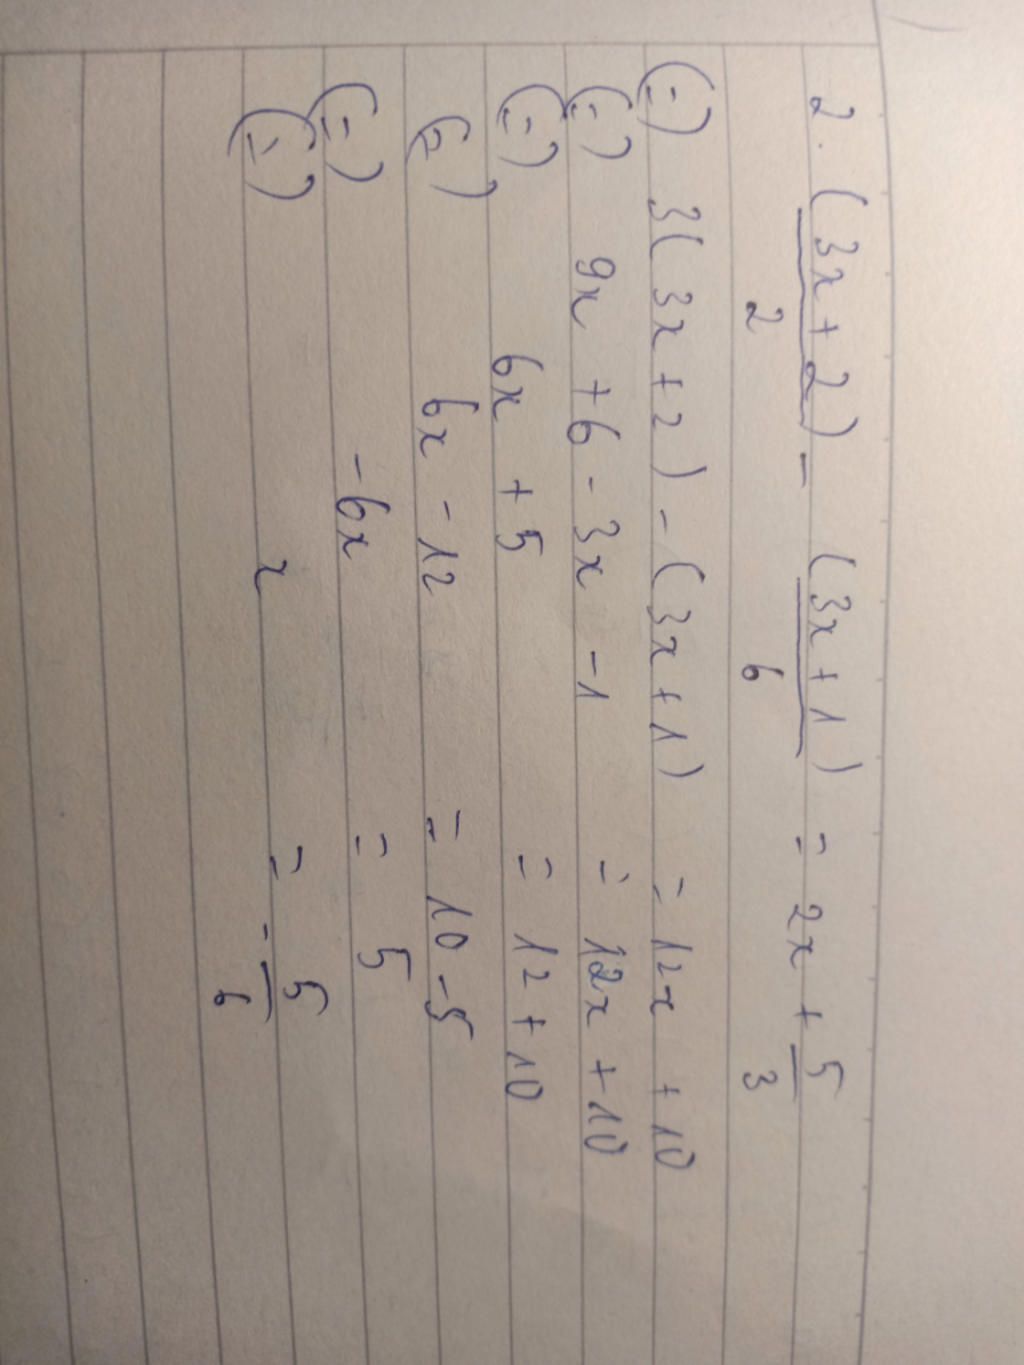 2. (3x+2)/2 - (3x+1)/6 = 2x + 5/3
(=) 3(3x+2) - (3x+1) = 12x + 10
(=) 9x + 6 - 3x - 1 = 12x + 10
(=) 6x + 5 = 12 + 10
(=) 6x - 12 = 10 - 5
(=) -6x = 5
(=) x = -5/6